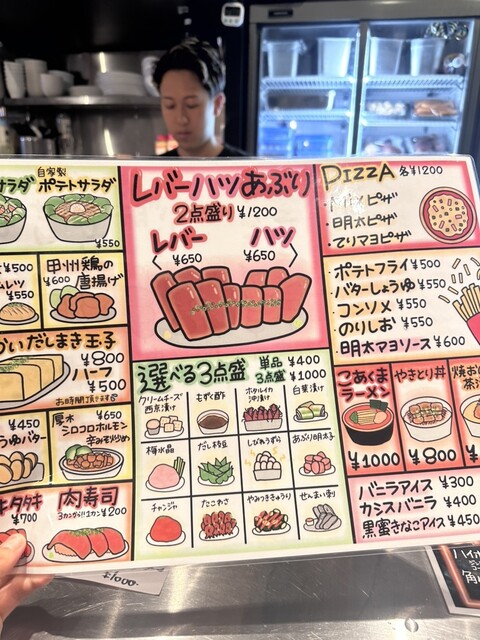 サラダ
自家製
ポテトサラダ
¥550
¥500
ムレツ
¥550
甲州鶏の
¥600 唐揚げ
かいだしまき玉子
¥800
ハーフ
¥500
お時間頂てます
¥450
うゆバター
厚木 ¥650
シロコロホルモン
辛みそ炒め
キタタキ
¥700
肉寿司
3カンから!1カン¥200
レバーハツあぶり
2点盛り ¥1200
レバー
¥650
ハツ
¥650
選べる3点盛
単品 ¥400
3点盛 ¥1000
クリームチーズ
西京漬け
もずく酢
ホタルイカ
沖漬け
白菜漬け
梅水晶
だし枝豆
しびれうずら
あぶり明太子
チャンジャ
たこわさ
やみつききゅうり
ぜんまい刺
PIZZA 各¥1200
・明太ピザ
・てりマヨピザ
・ポテトフライ ¥500
・バターしょうゆ ¥550
・コンソメ ¥550
・のりしお ¥550
・明太マヨソース ¥600
こあくま
ラーメン
¥1000
やきとり丼
¥800
焼お
茶
¥
バニラアイス ¥300
カシスバニラ ¥400
黒蜜きなこアイス ¥450
¥1000.
ハイ
角